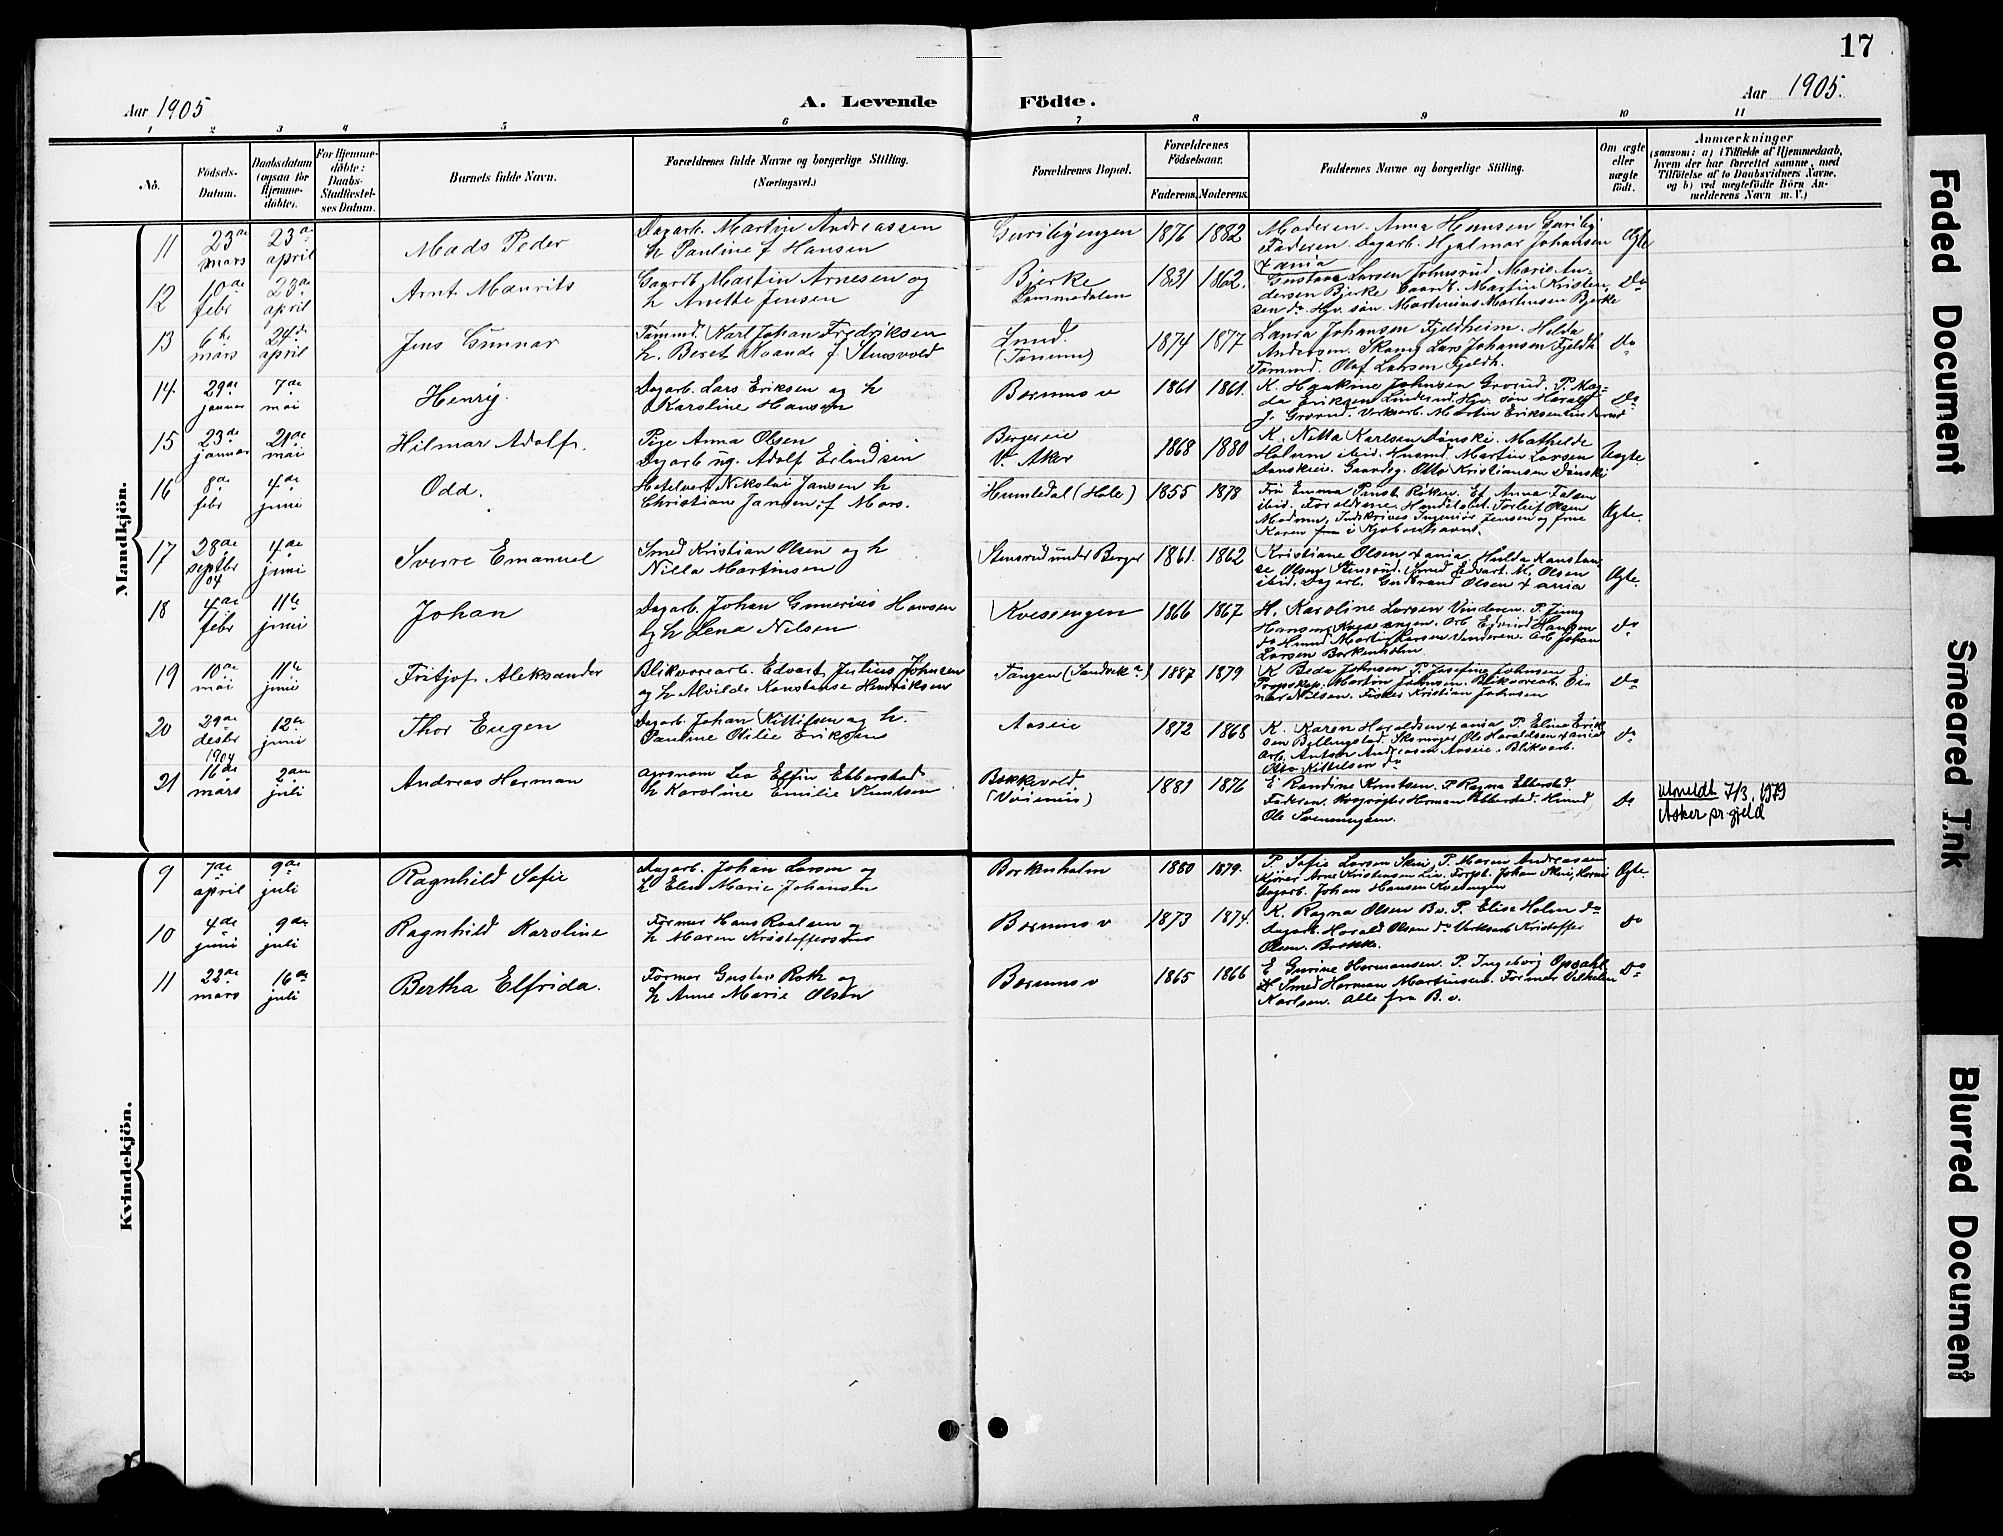 17
Aar 1905
A. Levende
Födte.
Aar 1905.
1 2 3 4 5 6 7 8 9 10 11
No.
Födsels-
Datum.
Daabsdatum
(ogsaa for
Hjemme-
döbte).
For Hjemme-
döbte:
Daabs-
Stadfæstel-
ses Datum.
Barnets fulde Navn.
Forældrenes fulde Navne og borgerlige Stilling.
(Næringsvei.)
Forældrenes Bopæl.
Forældrenes
Födselsaar.
Faderens. Moderens.
Faddernes Navne og borgerlige Stilling.
Om ægte
eller
uægte
födt.
Anmærkninger
(saasom: a) i Tilfælde af Hjemmedaab,
hvem der har forrettet samme, med
Tilföielse af to Daabsvidners Navne,
og b) ved uægtefödte Börn An-
melderens Navn m. V.)
Mandkjön.
11 23de mars 23de april Mads Peder
Dagarb. Martin Andreassen
h Pauline f Hansen
Guribyengen 1876 1882
Moderen. Anna Hansen Guriby
Faderen. Dagarb. Hjalmar Johansen
Ægte
12 10de febr 23de april Arnt Maurits
Gaardb Martin Arnesen og
h Anette Jensen
Bjerke
Lommedalen
1831 1862.
Gustava Larsen Johnsrud Marie An-
dersen Bjerke Gaardb. Martin Kristen-
sen do Hgv. søn Martinius Martinsen Bjerke
Do
13 6te mars 24de april Jens Gunnar
Tømmd. Karl Johan Fredriksen
h. Beret Kaande f. Stensvold
Lund.
(Tanum)
1874 1877
Laura Johansen Fjeldheim. Hilda
Andersen. Skomg Lars Johansen Fjeldh
Tømmd. Olaf Larsen Fjeldh.
Do
14. 29de januar 7de mai Henry.
Dagarb. Lars Eriksen og h
Karoline Hansen
Bærums v 1861 1861.
K. Haakine Johnsen Grorud. P. Mag-
da Eriksen Linderud. Hgv. søn Harald
J. Grorud. Verksarb. Martin Eriksen Linderud
Do
15 23de januar 21de mai Hilmar Adolf.
Pige Anna Olsen
Dagarb ug. Adolf Erlandsen
Bergereie
V. Aker
1868 1880
K. Nilla Karlsen Dønski. Mathilde
Holum ibid. Husmd Martin Larsen
Danskeie. Gaardsg. Otto Kristiansen Dønski
Uægte.
16 8de febr 4de juni Odd.
Hotelvert Nikolai Jansen h
Christiane Jansen f. Mors.
Humledal (Hole) 1855 1878
Fru Emma
ibid. Forældrene. Handelsbt. Torleif Olsen
Modum, Ingeniør Jensen og frue
Karen fra i Kjøbenhavn.
Ægte.
17 28de septbr 04 4de juni Sverre Emanuel
Smed Kristian Olsen og h
Nilla Martinsen
Stensrud under Berger 1861. 1862
Kristiane Olsen + ania, Hulda Konstan-
se Olsen Stensrud. Smed Edvart. M. Olsen
ibid. Dagarb. Gudbrand Olsen + ania
Ægte.
18 4de febr 11te juni Johan
Dagarb. Johan Gunerius Hansen
og h Lena Nilsen
Kvesengen 1866 1867
H. Karoline Larsen Vinderen. P. Jenny
Hansen Kvesengen. Arb Ejvind Hansen
do Husmd. Martin Larsen Vinderen. Arb Johan
Larsen Borkenholm.
do
19 10de mai 11te juni Fritjof Aleksander
Blikvarearb. Edvart Julius Johnsen
og h Alvilde Konstanse Hendriksen
Tangen (Sandvika) 1887 1879
K Beda Johnsen P. Josefine Johnsen
Martin Johnsen. Blikvarearb. Ei-
nar Nilsen. Fisker Kristian Johnsen
do
20 29de desbr 1904 12te juni Thor Eugen
Dagarb. Johan Kittilsen og h.
Pauline Otilie Eriksen
Aaseie 1872 1868
K. Karen Haraldsen + ania P. Eline Erik-
sen Billingstad. Skomager Ole Haraldsen + ania
Arb. Anton Andreasen Aaseie. Bliksarb.
Otto Kittelsen do
do
21 16de mars 2den juli Andreas Herman
Agronom Leo Elfin Ebberstad
h Karoline Emilie Knutsen
Bakkevold.
1881 1876
E Randine Knutsen. P Ragna Ebberstad.
Faderen. Krigsrøgter Herman Ebberstad. Husmd
Ole Svenningsen.
do
utmeldt 7/3. 1979
Asker pr.gjeld
Kvindekjön.
9 7de april 9de juli Ragnhild Sofie
Dagarb. Johan Larsen og
h Elen Marie Johansen
Borkenholm 1880 1879.
P. Sofie Larsen Skui, P. Maren Andreassen
Kjører Arne Kristensen Lie. Forpt. Johan Skui,
Dagarb. Johan Hansen Kvesengen
Ægte.
10 4de juni 9de juli Ragnhild Karoline
Former Hans Paulsen og
h Maren Kristoffersens
Bærums v 1873 1874.
K. Ragna Olsen B.v. P. Elise Holm do
Dagarb. Harald Olsen do Verksarb Kristoffer
Olsen. Brække.
do
11 22de mars 16de juli Bertha Elfrida.
Former Gustav Roth og
h Anne Marie Olsen
Bærums v 1865 1866
E Gurine Hermansen. P. Ingeborg Opsahl
Smed Herman Martinsen. Former Vilhelm
Karlsen. Alle fra B. v.
do
Faded Document
Smeared Ink
Blurred Document